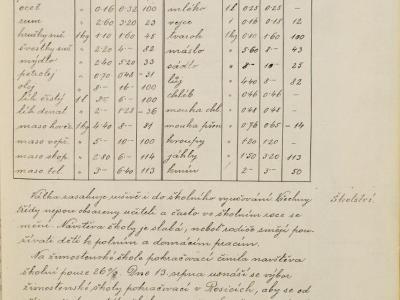 ocet " 0·16 0·32 100 mléko 1l 0·25 0·25 -
rum " 2·60 3·20 23 vejce 1 0·16 0·18 12
hrušky suš. 1kg 1·10 1·60 45 tvaroh 1kg 0·10 1·60 100
švestky suš. " 2·20 4·- 82 máslo " 5·60 8·- 43
mýdlo " 2·40 5·20 33 sádlo " 8·- 10·- 25
petrolej " 0·70 0·48 -31 lůj " 4·40 8·- 82
olej " 8·- 16·- 100 chléb " 0·46 0·46 -
líh čistý 1l 3·- 6·- 100 mouka chl. " 0·48 0·48 -
líh denat. " 2·- 1·28 -36 mouka pšen. " 0·76 0·65 -14
maso hověz. 1kg 4·40 8·- 81 kroupy " 1·20 1·20 -
maso vepř. " 5·- 10·- 100 jáhly " 1·50 3·20 113
maso skop. " 2·80 6·- 114 kmín " 2·- 3·- 50
maso tel. " 3·- 6·40 113
Válka zasahuje rušivě i do školního vyučování. Všechny Školství.
třídy nejsou obsazeny učiteli a často ve školním roce se
mění. Návštěva školy je slabá, neboť rodiče smějí pou-
žívati dětí k polním a domácím pracím.
Na živnostenské škole pokračovací činila návštěva
školní pouze 26%. Dne 13. srpna usnáší se výbor
živnostenské školy pokračovací v Rosicích, aby se od